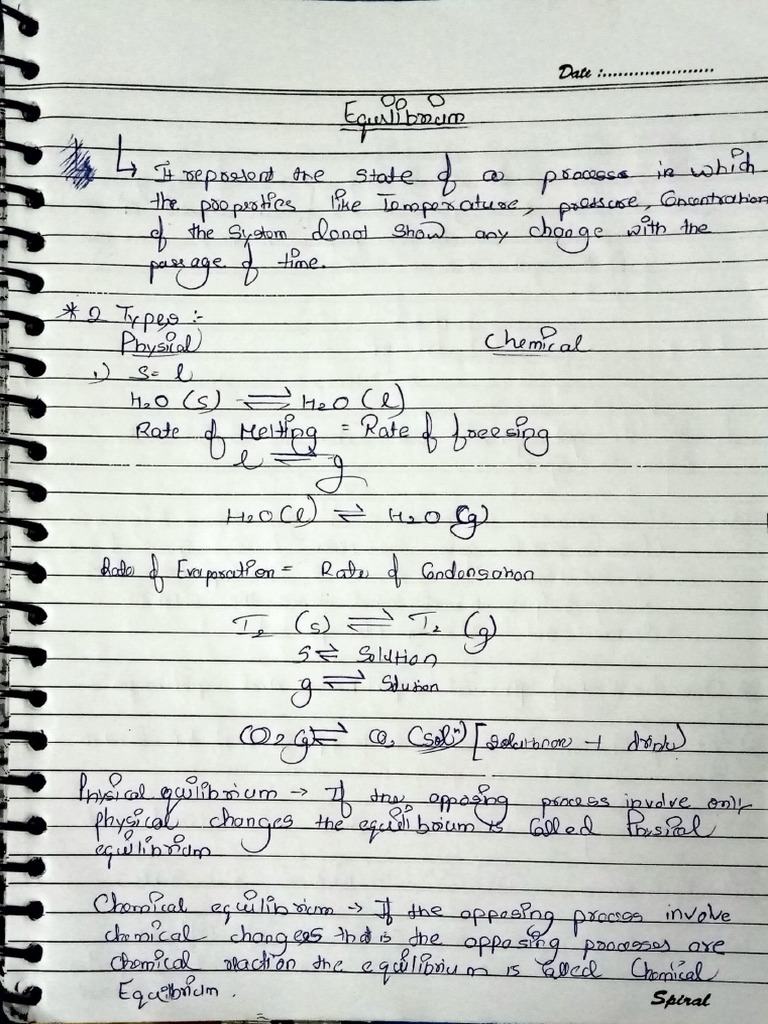 Date :.....................
Equilibrium
↳ It represent the state of a process in which
the properties like Temperature, pressure, Concentration
of the System donot Show any change with the
passage of time.
* 2 Types :-
Physical Chemical
1) S = l
H2O (s) ⇌ H2O (l)
Rate of Melting = Rate of freesing
l ⇌ g
H2O (l) ⇌ H2O (g)
Rate of Evaporation = Rate of Condensation
I2 (s) ⇌ I2 (g)
S ⇌ Solution
g ⇌ Solution
CO2 (g) ⇌ CO2 (soln) [ drink]
Physical equilibrium → If the opposing process involve only
physical changes the equilibrium is Called Physical
equilibrium
Chemical equilibrium → If the opposing process involve
chemical changes that is the opposing processes are
chemical reaction the equilibrium is Called Chemical
Equilibrium.
Spiral